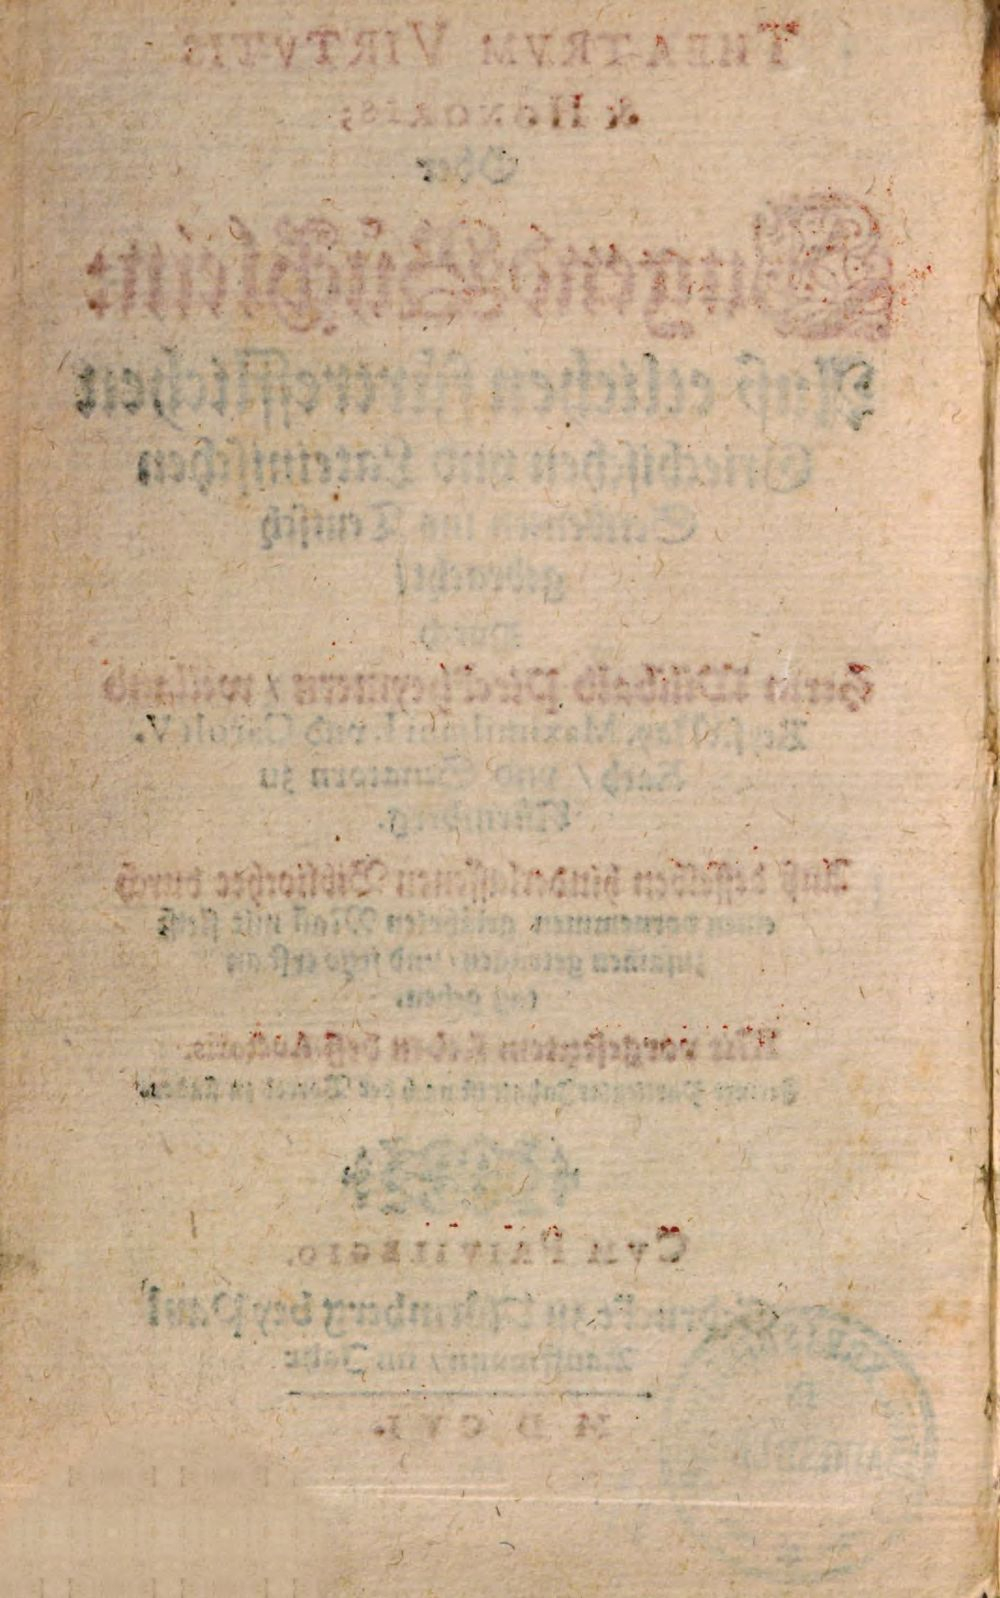 THEATRVM VIRTVTIS
& HONORIS;
Oder
Tugend Büchlein:
Auß etlichen fürtrefflichen
Griechischen vnd Lateinischen
Scribenten ins Teutsch
gebracht/
Durch
Herrn Wilibald Pirckheymern / weiland
Keys. May. Maximiliani I. vnd Caroli V.
Rath / vnd Senatorn zu
Nürmberg.
Auß desselben hinderlassenen Bibliothec durch
einen vornemmen gelährten Mañ mit fleiß
zusamen getragen / vnd jetzo erst an
tag geben.
Mit vorgesetztem Leben deß Authoris.
Inhalt der zu
CVM PRIVILEGIO.
Gedruckt zu Nürmberg bey Paul
Kauffmann/ im Jahr
M D C VI.